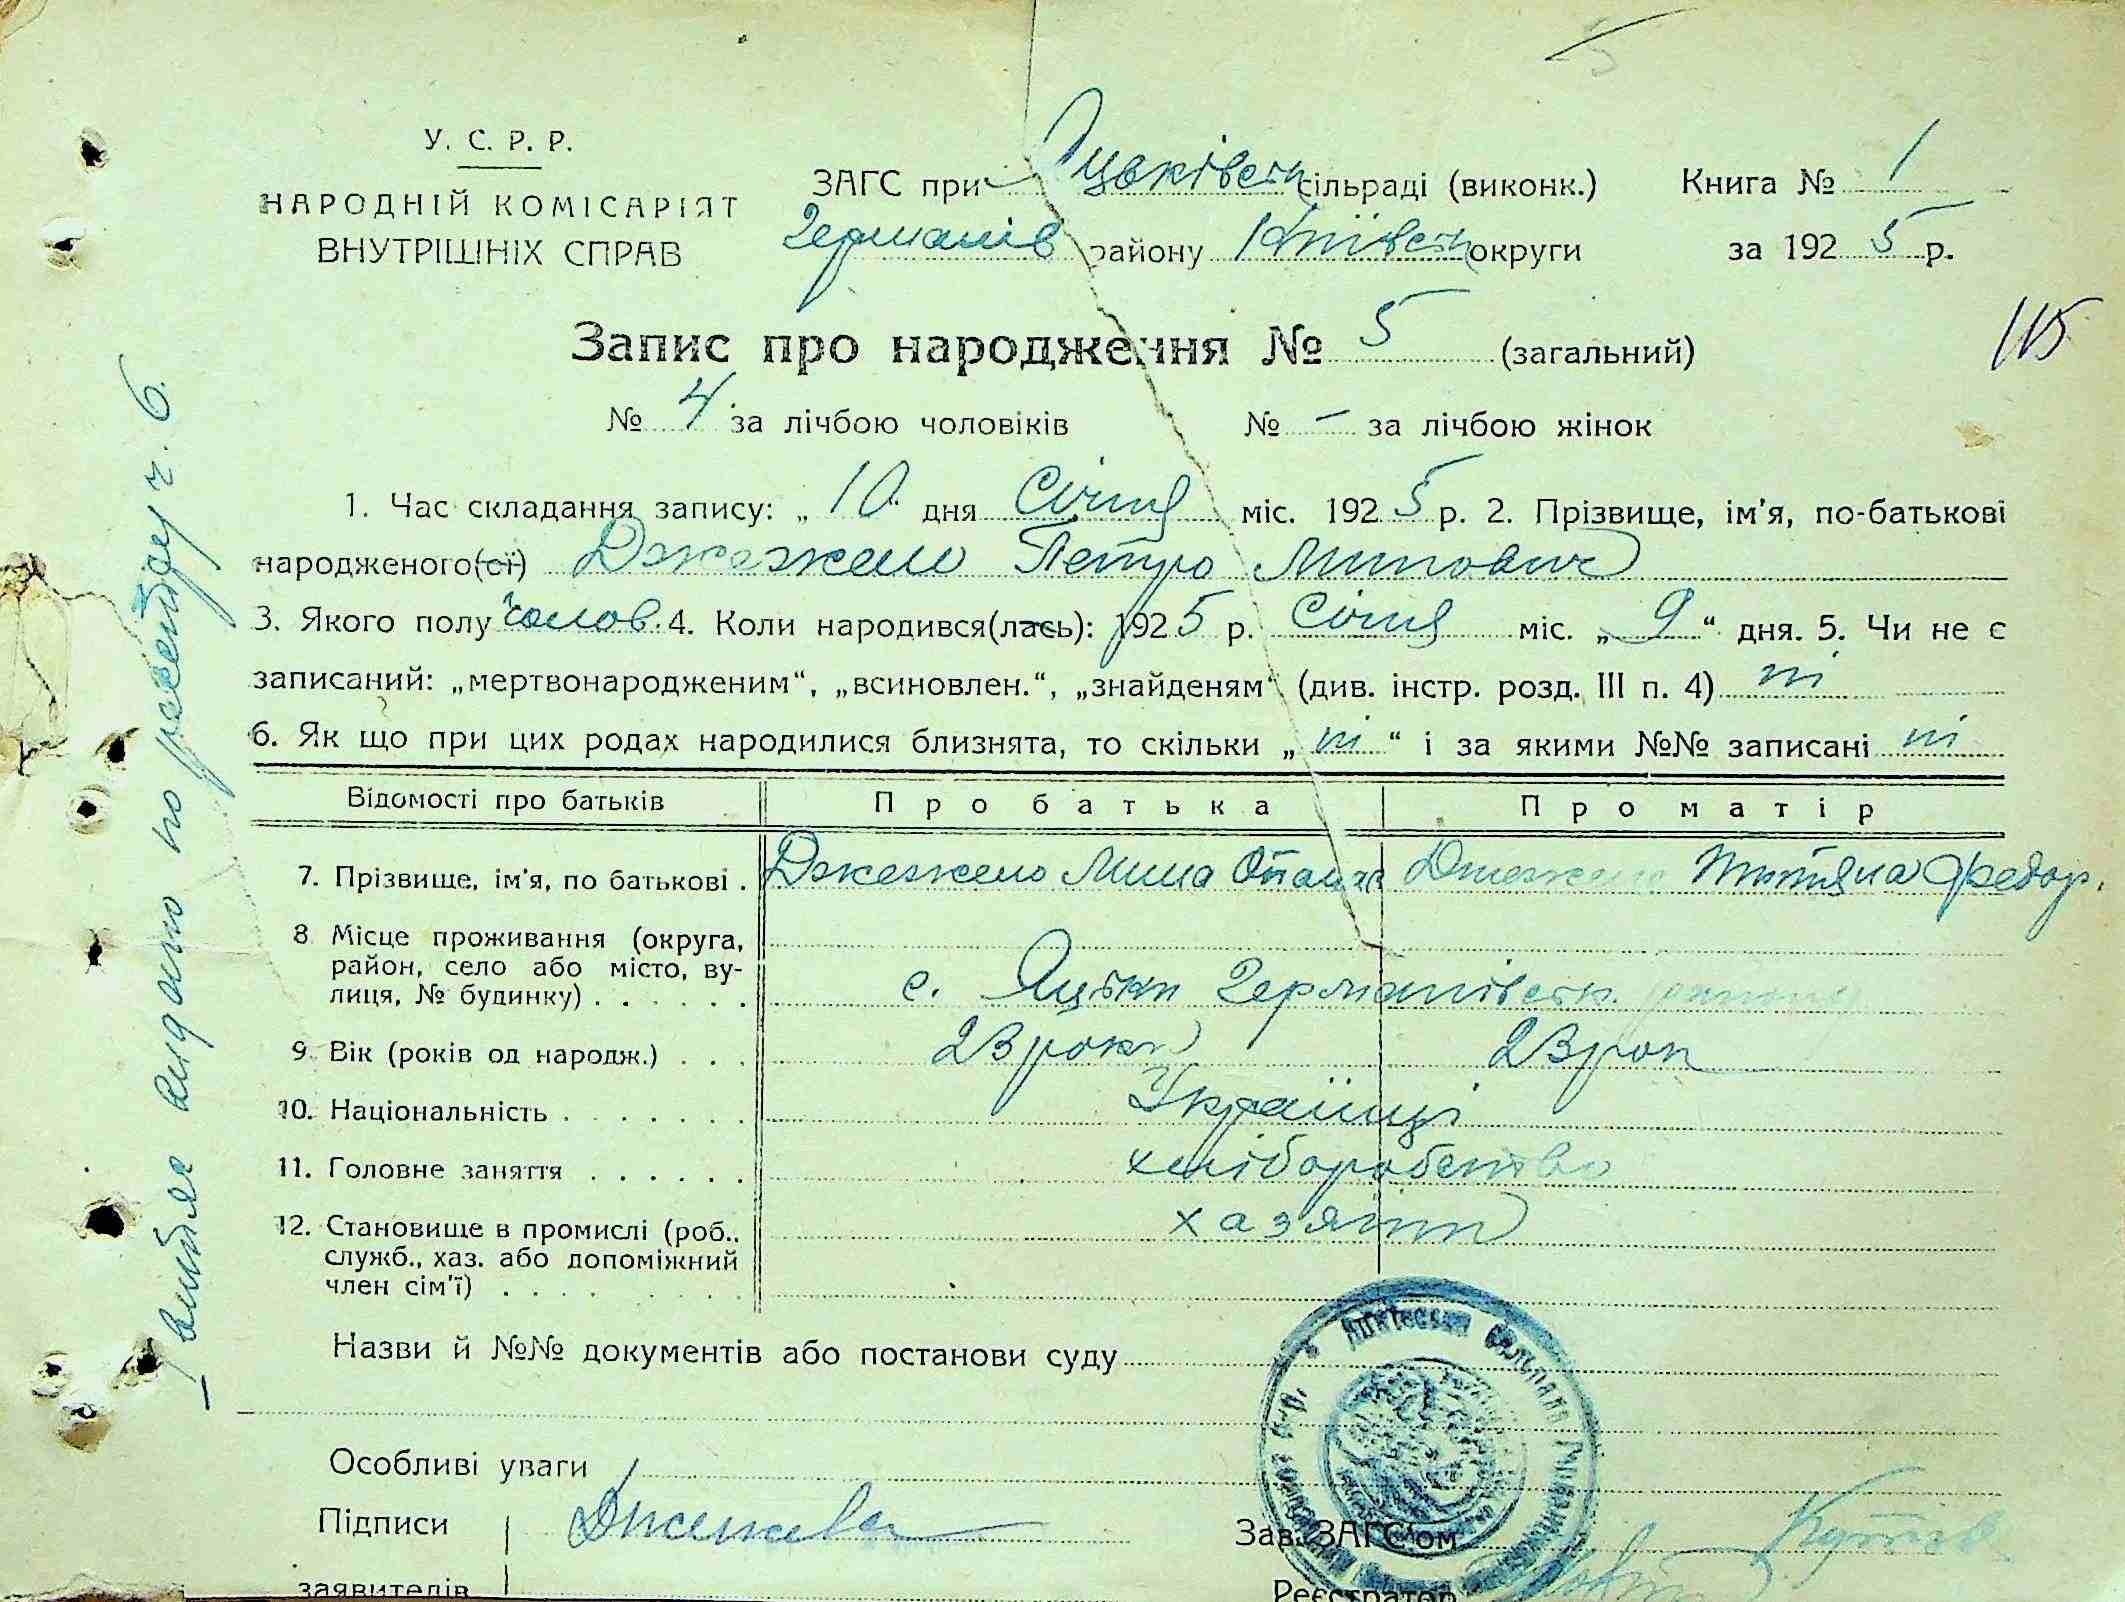 У. С. Р. Р.
НАРОДНІЙ КОМІСАРІЯТ
ВНУТРІШНІХ СПРАВ
ЗАГС при Яцьківськ сільраді (виконк.) Книга № 1
Германів району Київськ округи за 1925 р.
Запис про народження № 5 (загальний)
115
№ 4 за лічбою чоловіків № – за лічбою жінок
1. Час складання запису: „ 10 дня Січня міс. 1925 р. 2. Прізвище, ім'я, по-батькові
народженого(сї) Джежело Петро Минович
3. Якого полу чолов. 4. Коли народився(лась): 1925 р. Січня міс. „ 9 “ дня. 5. Чи не є
записаний: „мертвонародженим“, „всиновлен.“, „знайденям“ (див. інстр. розд. III п. 4) ні
6. Як що при цих родах народилися близнята, то скільки „ ні “ і за якими №№ записані ні
Відомості про батьків Про батька Про матір
7. Прізвище, ім'я, по батькові . Джежело Мина Джежело Тетяна Федор.
8 Місце проживання (округа,
район, село або місто, ву-
лиця, № будинку) . . . . . . с. Яцьки Германівськ. району
9. Вік (років од народж.) . . . 23 роки 23 рок
10. Національність . . . . . . . Українці
11. Головне заняття . . . . . . хліборобство
12. Становище в промислі (роб.,
служб., хаз. або допоміжний
член сім'ї) . . . . . . . . хазяїни
Назви й №№ документів або постанови суду
Особливі уваги
Підписи
заявителів
Зав. ЗАГС'ом
Реєстратор
витяг видано по